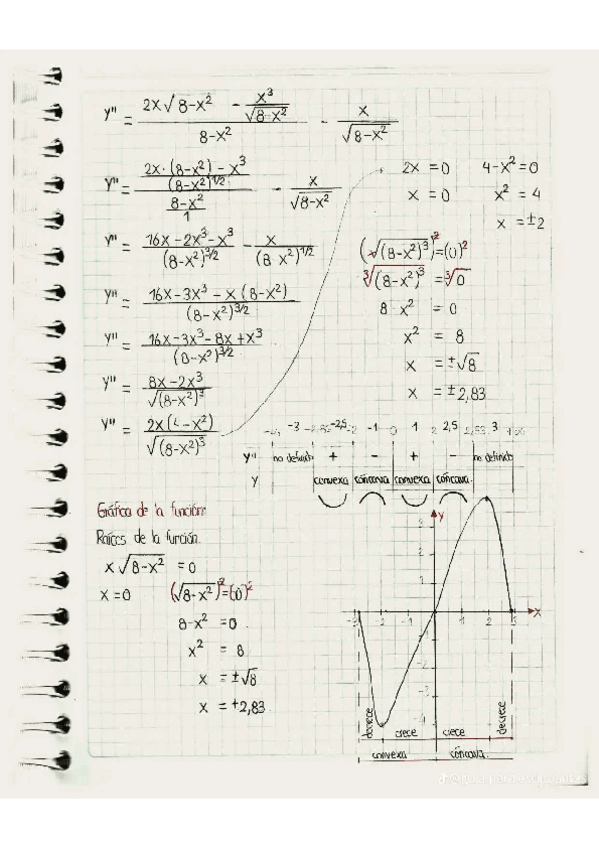 y'' = (2x√8-x² - x³/√8-x²)/(8-x²) - x/√8-x²
y'' = (2x·(8-x²)-x³/(8-x²)^1/2)/((8-x²)/1) - x/√8-x²
y'' = (16x-2x³-x³)/(8-x²)^3/2 - x/(8 x²)^1/2
y'' = (16x-3x³-x(8-x²))/(8-x²)^3/2
y'' = (16x-3x³-8x+x³)/(8-x²)^3/2
y'' = (8x-2x³)/√(8-x²)³
y'' = 2x(4-x²)/√(8-x²)³
2x = 0 4-x² = 0
x = 0 x² = 4
x = ±2
(√(8-x²)³)² = (0)²
³√(8-x²)³ = ³√0
8 x² = 0
x² = 8
x = ±√8
x = ±2,83
-3 -2,5 -2 -1 0 1 2 2,5 3
y'' no definido + - + - no definido
y convexa cóncava convexa cóncava
Gráfica de la función:
Raíces de la función.
x√8-x² = 0
x = 0 (√8-x²)² = (0)²
8-x² = 0
x² = 8
x = ±√8
x = ±2,83
y
3
2
1
-3 -2 -1 1 2 3 x
-1
-2
-3
-4
decrece crece crece decrece
convexa cóncava